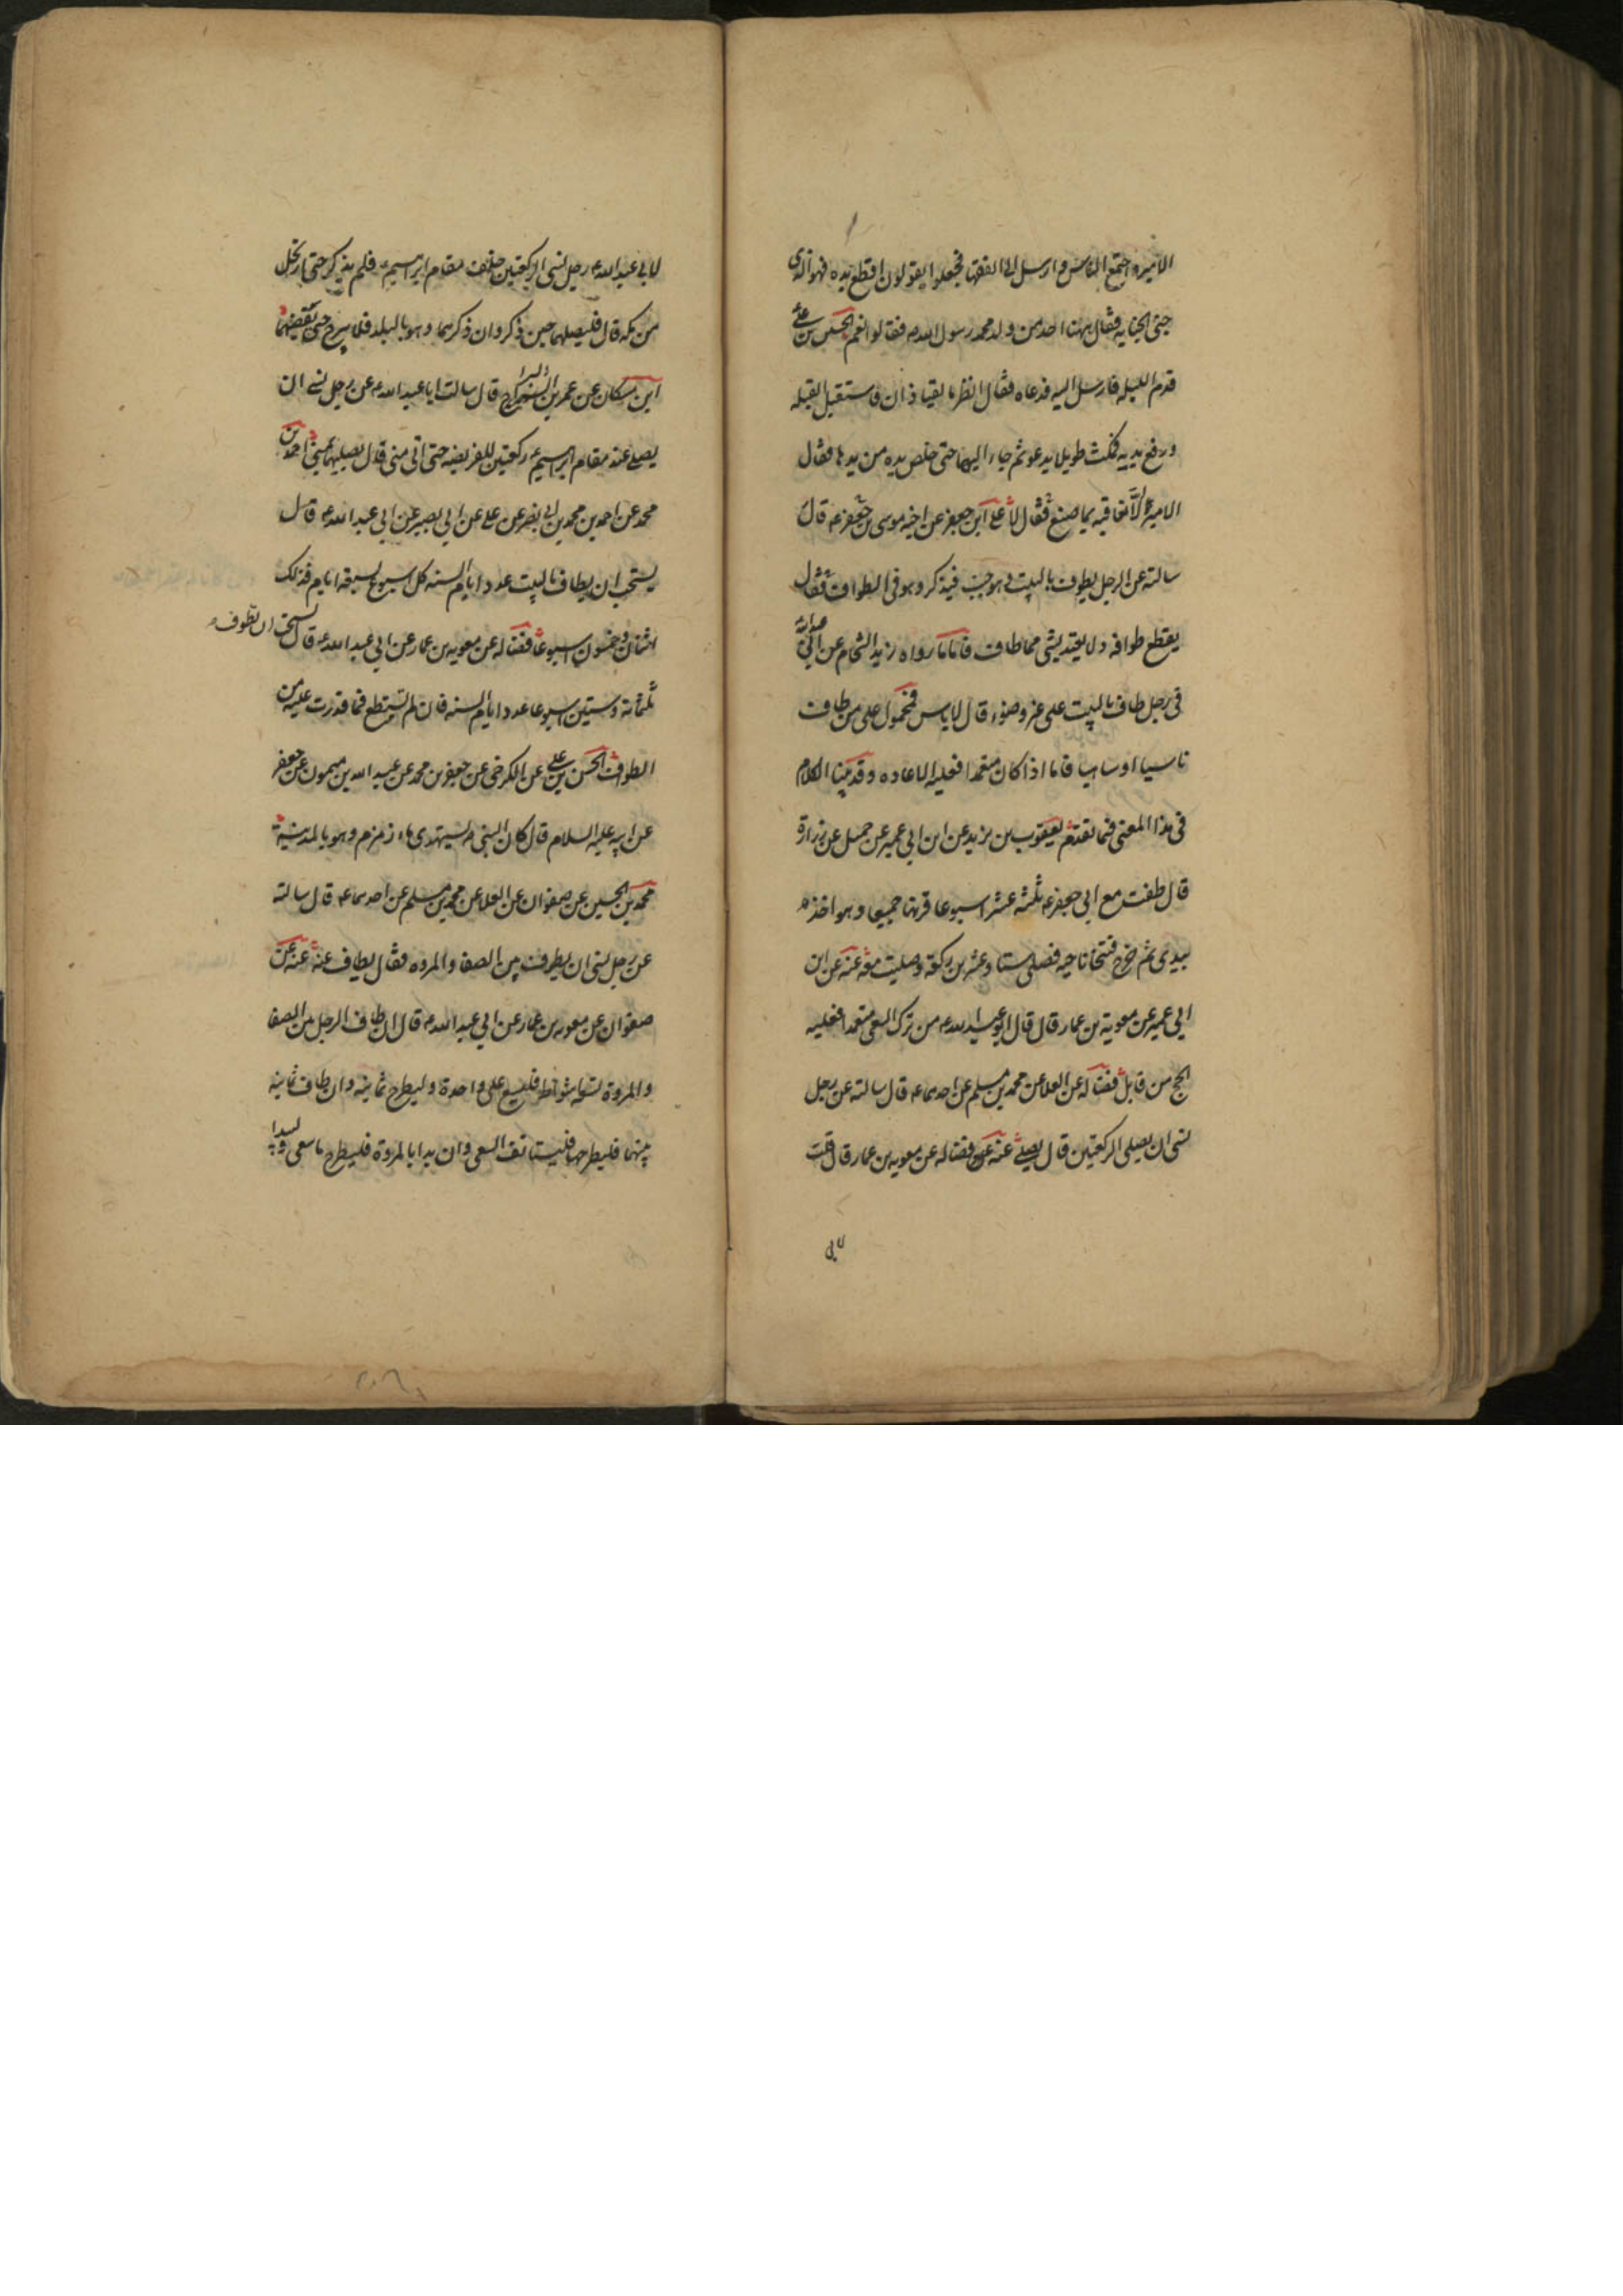 الامير واجتمع الناس وارسل الى الفقها فجعلوا يقولون اقطع يده فهو الذي
جنى الجنايه فقال ههنا احد من ولد محمد رسول الله ص فقالوا نعم الحسين بن علي
قدم الليله فارسل اليه فدعاه فقال انظر ما لقيا ذان فاستقبل القبله
ورفع يديه فمكث طويلا يدعو ثم جاء اليهما حتى خلص يده من يدها فقال
الامير الا نعاقبه بما صنع فقال لا علي ابن جعفر عن اخيه موسى بن جعفر ع قال
سالته عن الرجل يطوف بالبيت وهو جنب فيذكر وهو في الطواف فقال
يقطع طوافه ولا يعتد بشي مما طاف فاما ما رواه زيد الشحام عن ابي عبد الله
في رجل طاف بالبيت على غير وضوء قال لا باس فمحمول على من طاف
ناسيا او ساهيا فاما اذا كان متعمدا فعليه الاعاده وقد بينا الكلام
في هذا المعنى فيما تقدم يعقوب بن يزيد عن ابن ابي عمير عن جميل عن زرارة
قال طفت مع ابي جعفر ع ثلثه عشر اسبوعا قرنها جميعا وهو اخذ
بيدي ثم خرج فتنحا ناحيه فصلى ستا وعشرين ركعة وصليت معه عنه عن ابن
ابي عمير عن معوية بن عمار قال قال ابو عبد الله ع من ترك السعي متعمدا فعليه
الحج من قابل فضاله عن العلا عن محمد بن مسلم عن احدهما ع قال سالته عن رجل
نسي ان يصلي الركعتين قال يصلي عنه عن فضاله عن معويه بن عمار قال قلت
لابي عبد الله ع رجل نسي الركعتين خلف مقام ابرهيم ع فلم يذكر حتى ارتحل
من مكه قال فليصلهما حين ذكر وان ذكرهما وهو بالبلد فلا يبرح حتى يقضيهما
ابن مسكان عن عمر بن البراء قال سالت ابا عبد الله ع عن رجل نسي ان
يصلي عند مقام ابرهيم ع ركعتين للفريضه حتى اتى منى قال يصليهما بمنى احمد بن
محمد عن احمد بن محمد بن ابي نصر عن علي عن ابي بصير عن ابي عبد الله ع قال
يستحب ان يطاف بالبيت عدد ايام السنه كل اسبوع لسبعة ايام فذلك
اثنان وخمسون اسبوعا فضاله عن معويه بن عمار عن ابي عبد الله ع قال يستحب ان تطوف
ثلثمائة وستين اسبوعا عدد ايام السنه فان لم تستطع فما قدرت عليه من
الطواف الحسن بن علي عن الكرخي عن جعفر بن محمد عن عبد الله بن ميمون عن جعفر
عن ابيه عليه السلام قال كان النبي ص يستهدي ماء زمزم وهو بالمدينة
محمد بن الحسين عن صفوان عن العلا عن محمد بن مسلم عن احدهما ع قال سالته
عن رجل نسي ان يطوف بين الصفا والمروه فقال يطاف عنه عنه عن
صفوان عن معويه بن عمار عن ابي عبد الله ع قال ان طاف الرجل بين الصفا
والمروة تسعه اشواط فليسع على واحدة وليطرح ثمانيه وان طاف ثمانيه
بينهما فليطرحها فليستانف السعي وان بدا بالمروة فليطرح ما سعى ويبدا